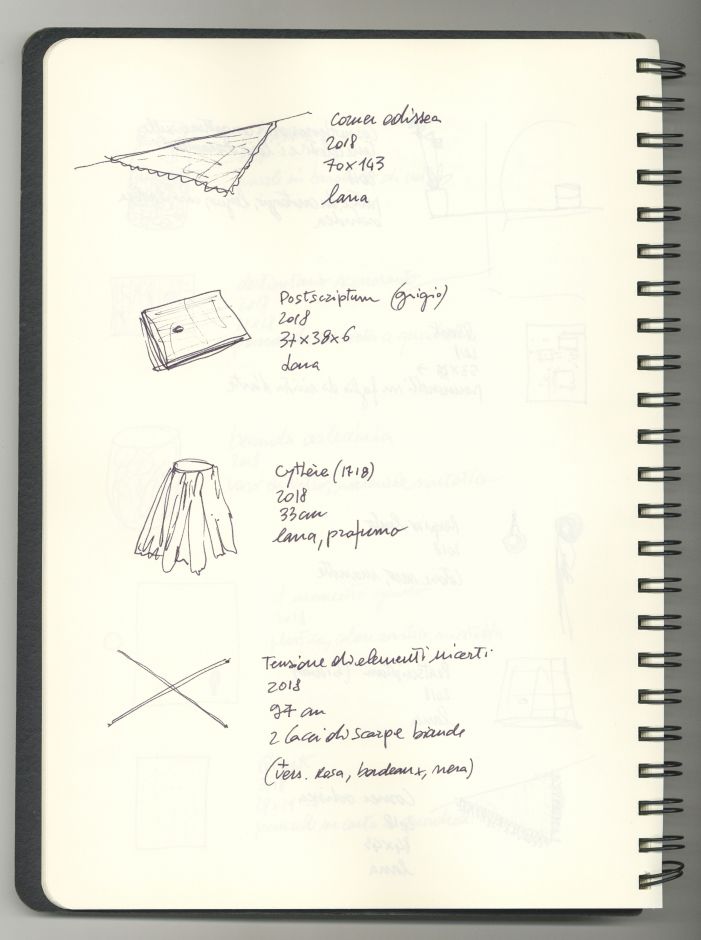 Corner odissea
2018
70x143
lana
Postscriptum (grigio)
2018
37x38x6
Lana
Cythère (1718)
2018
33cm
lana, profumo
Tensione di elementi incerti
2018
97 cm
2 lacci di scarpe bianche
(+ vers. rosa, bordeaux, nera)